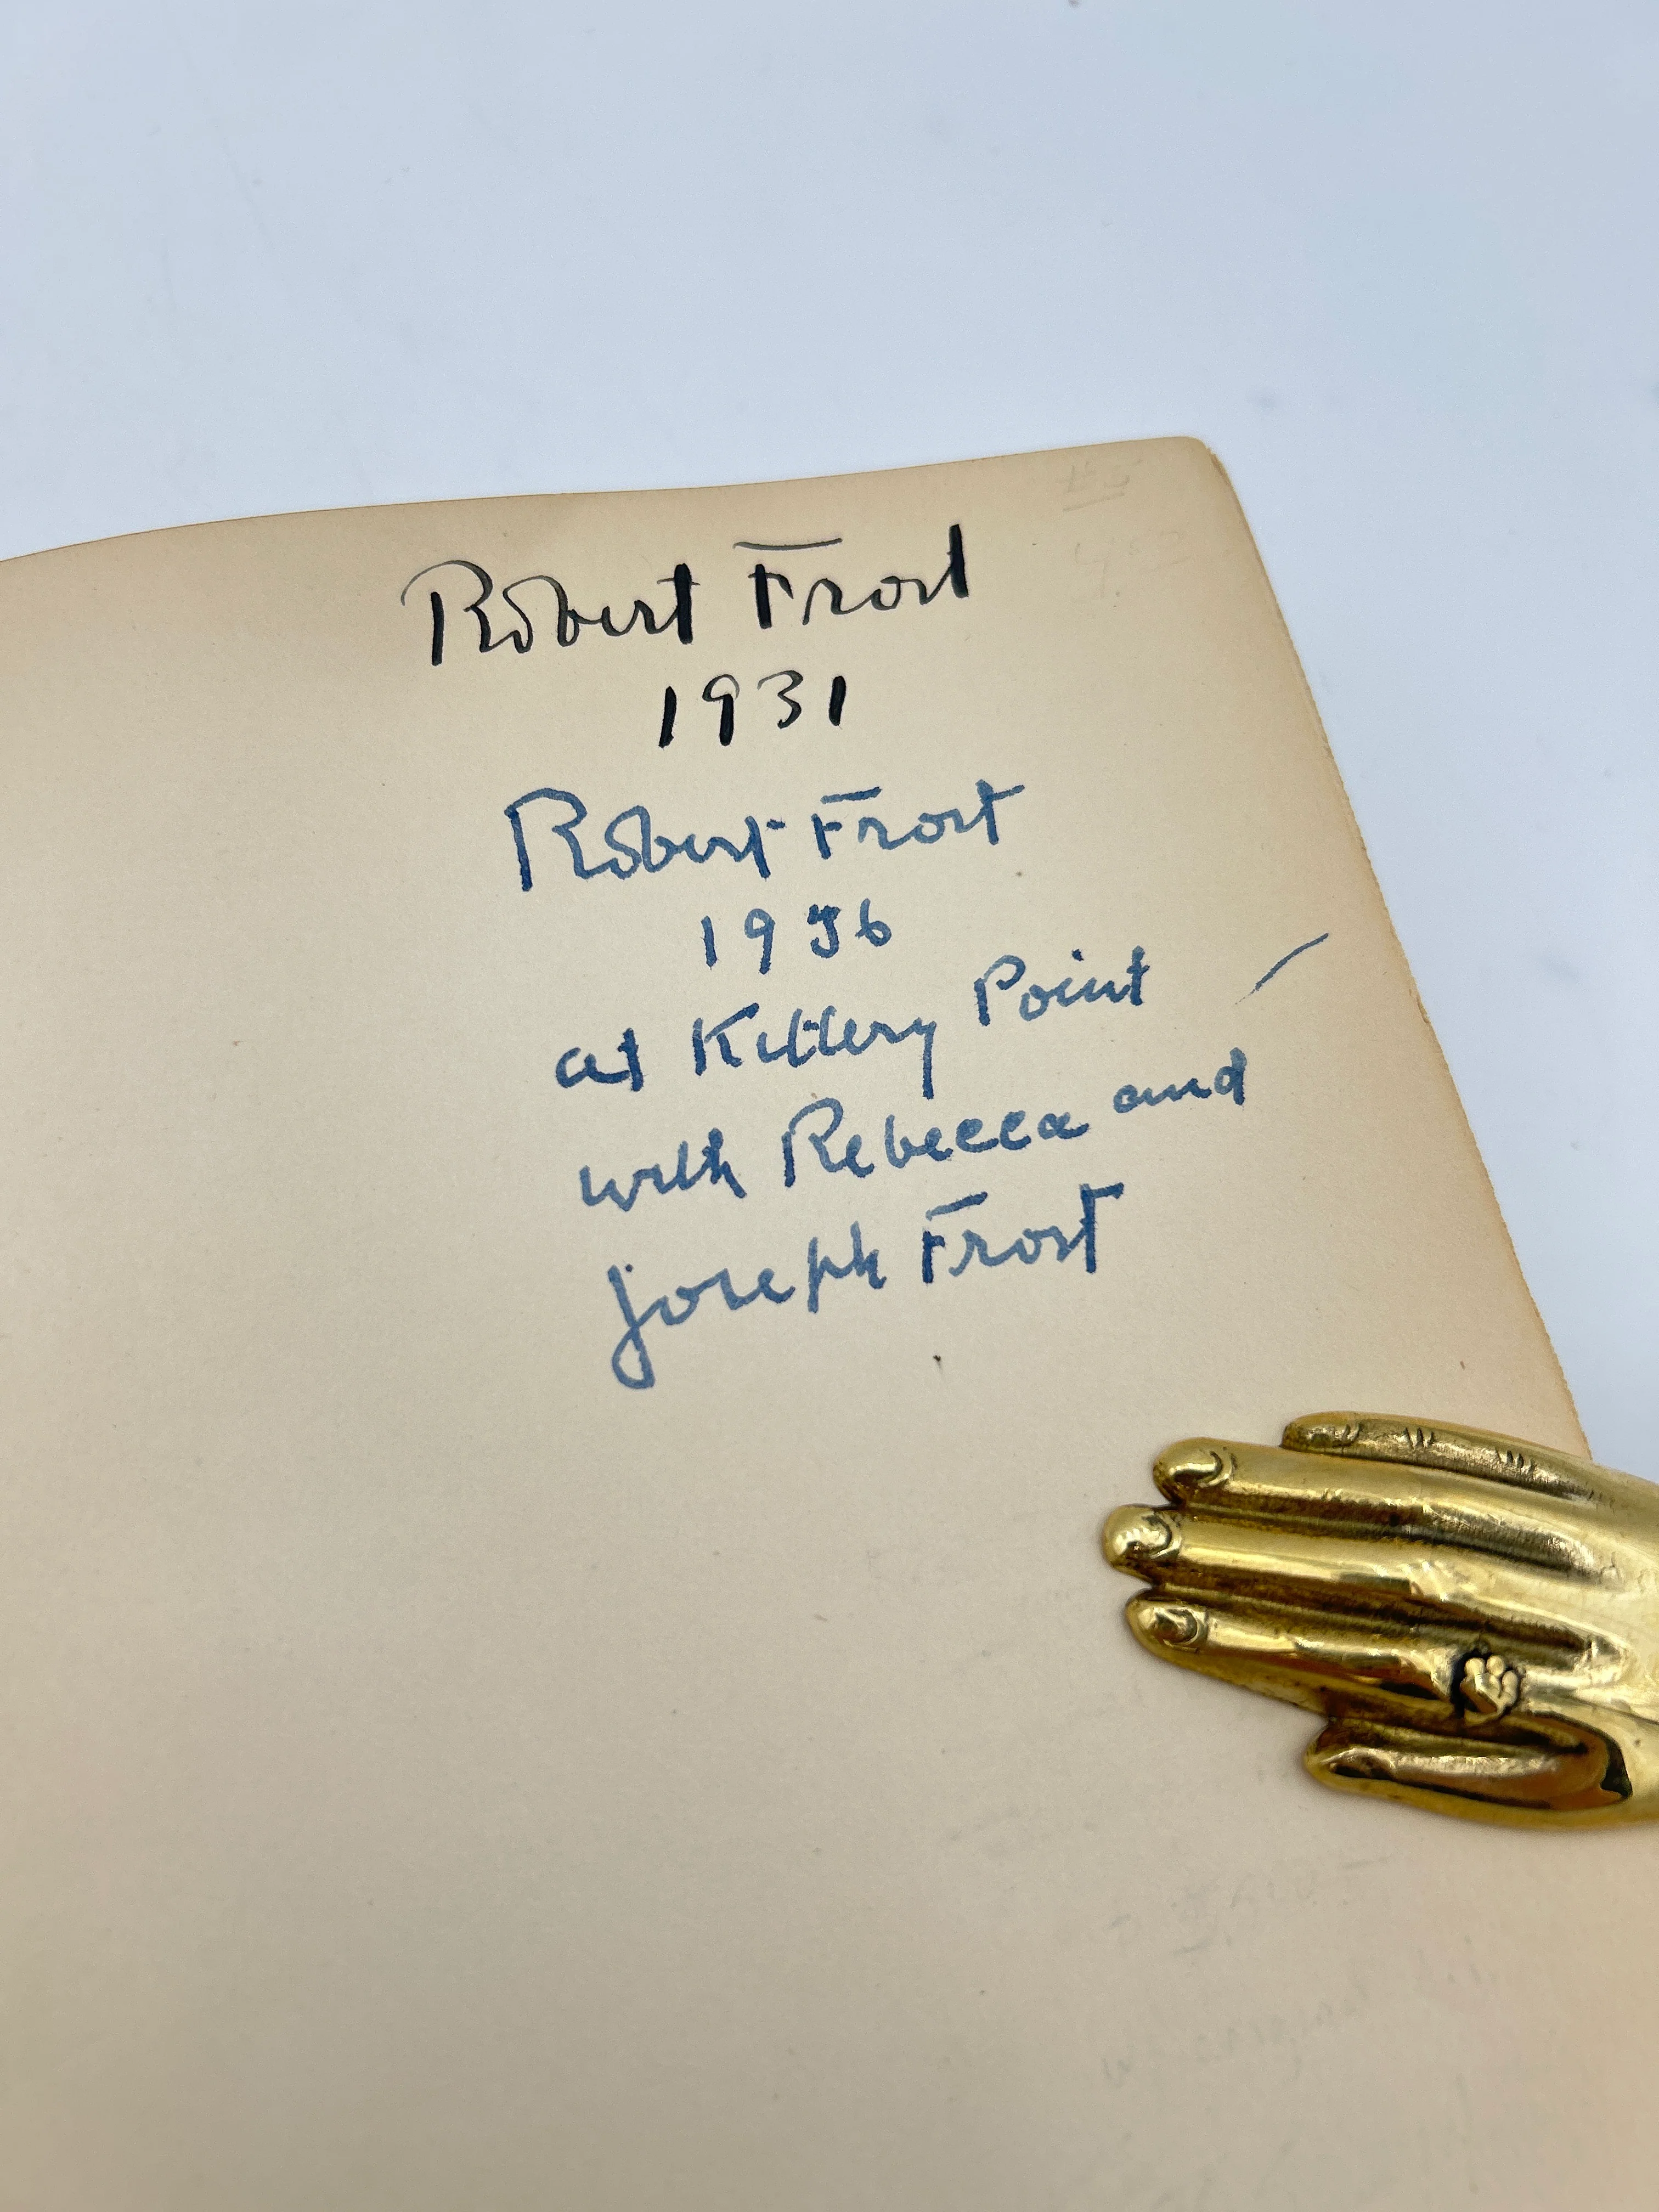 Robert Frost
1931
Robert Frost
1956
at Kittery Point
with Rebecca and
Joseph Frost